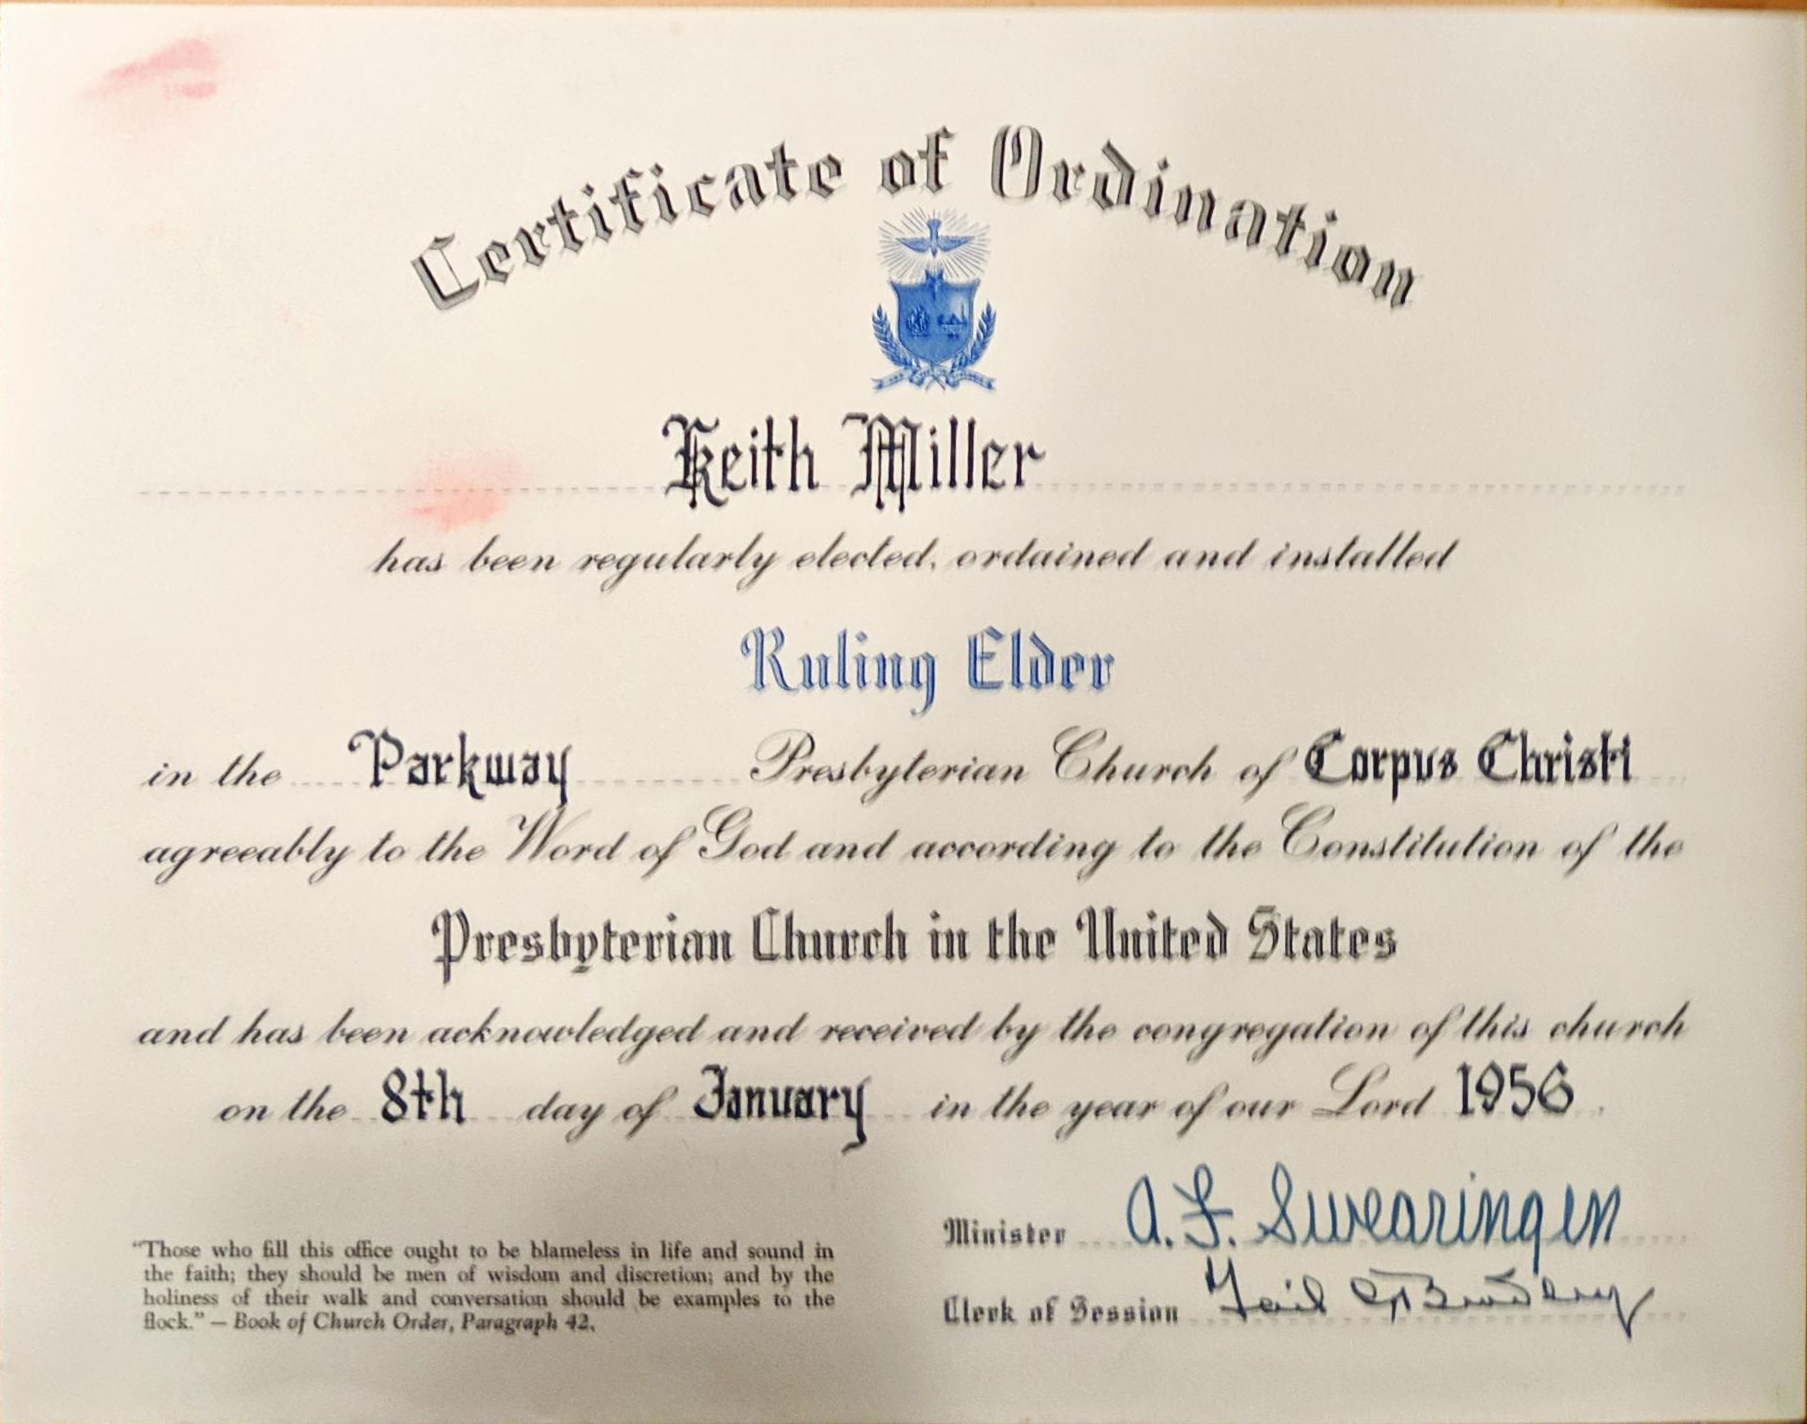 Certificate of Ordination
Keith Miller
has been regularly elected, ordained and installed
Ruling Elder
in the Parkway Presbyterian Church of Corpus Christi
agreeably to the Word of God and according to the Constitution of the
Presbyterian Church in the United States
and has been acknowledged and received by the congregation of this church
on the 8th day of January in the year of our Lord 1956
Minister A. F. Swearingen
Clerk of Session
"Those who fill this office ought to be blameless in life and sound in
the faith; they should be men of wisdom and discretion; and by the
holiness of their walk and conversation should be examples to the
flock." — Book of Church Order, Paragraph 42.